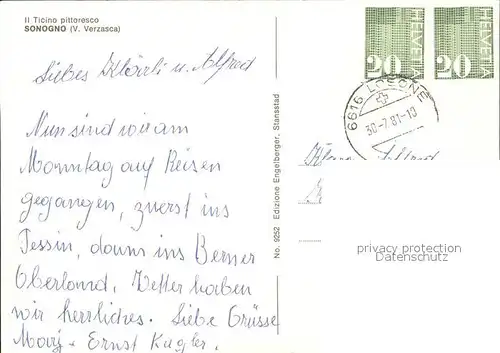 Il Ticino pittoresco
SONOGNO (V. Verzasca)
Liebes Klärli u. Alfred
Nun sind wir am
Monntag auf Reisen
gegangen, zuerst ins
Tessin, dann ins Berner
Oberland, Wetter haben
wir herrliches. Liebe Grüsse
Marj + Ernst Kugler.
No. 9252 Edizione Engelberger, Stansstad
HELVETIA
20
HELVETIA
20
6616 LOSONE
30-7.81-10
Alfred
privacy protection
Datenschutz